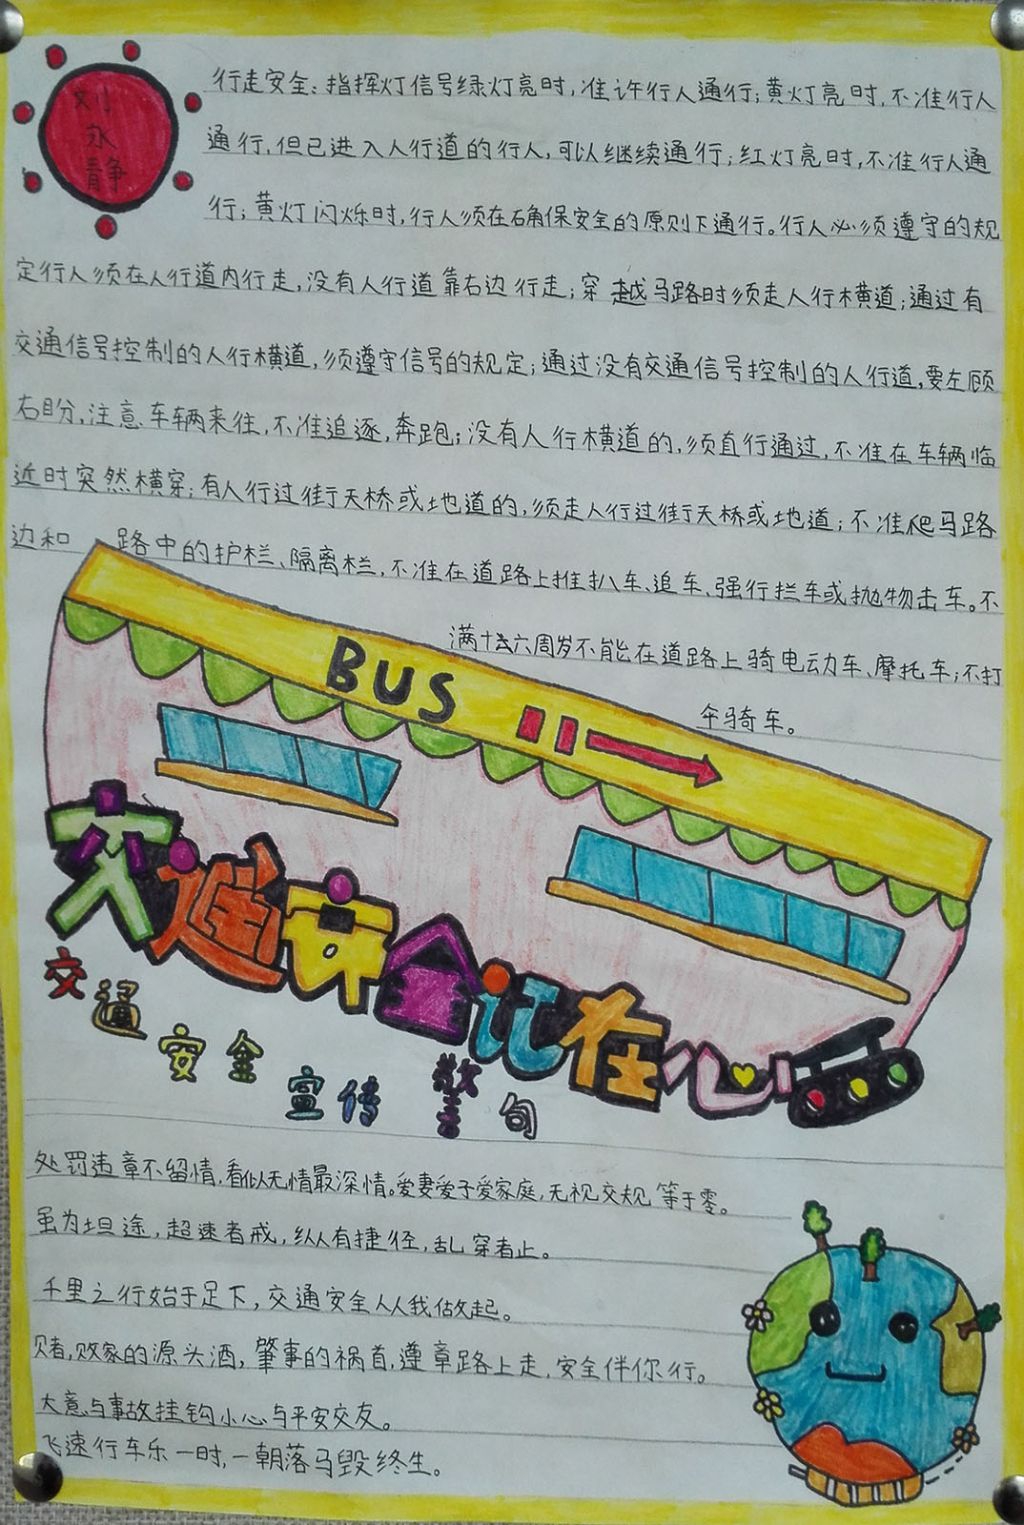 刘
永
静
行走安全:指挥灯信号绿灯亮时,准许行人通行;黄灯亮时,不准行人
通行,但已进入人行道的行人,可以继续通行;红灯亮时,不准行人通
行;黄灯闪烁时,行人须在确保安全的原则下通行。行人必须遵守的规
定行人须在人行道内行走,没有人行道靠右边行走;穿越马路时须走人行横道;通过有
交通信号控制的人行横道,须遵守信号的规定;通过没有交通信号控制的人行道,要左顾
右盼,注意车辆来往,不准追逐,奔跑;没有人行横道的,须直行通过,不准在车辆临
近时突然横穿;有人行过街天桥或地道的,须走人行过街天桥或地道;不准爬马路
边和路中的护栏、隔离栏,不准在道路上推扒车、追车、强行拦车或抛物击车。不
满十六周岁不能在道路上骑电动车、摩托车;不打
伞骑车。
BUS
交通安全记在心
交通安全宣传警句
处罚违章不留情,看似无情最深情。爱妻爱子爱家庭,无视交规等于零。
虽为坦途,超速者戒,纵有捷径,乱穿者止。
千里之行始于足下,交通安全人人我做起。
赌,败家的源头酒,肇事的祸首,遵章路上走,安全伴你行。
大意与事故挂钩小心与平安交友。
飞速行车乐一时,一朝落马毁终生。